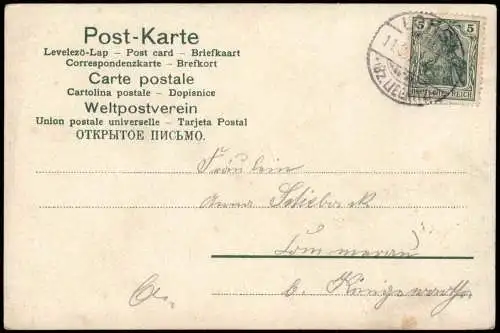 Post-Karte
Levelezö-Lap – Post card – Briefkaart
Correspondenzkarte – Brefkort
Carte postale
Cartolina postale – Dopisnice
Weltpostverein
Union postale universelle – Tarjeta Postal
ОТКРЫТОЕ ПИСЬМО.
5 5
REICH
Fräulein
Anna
Sommerau
b.